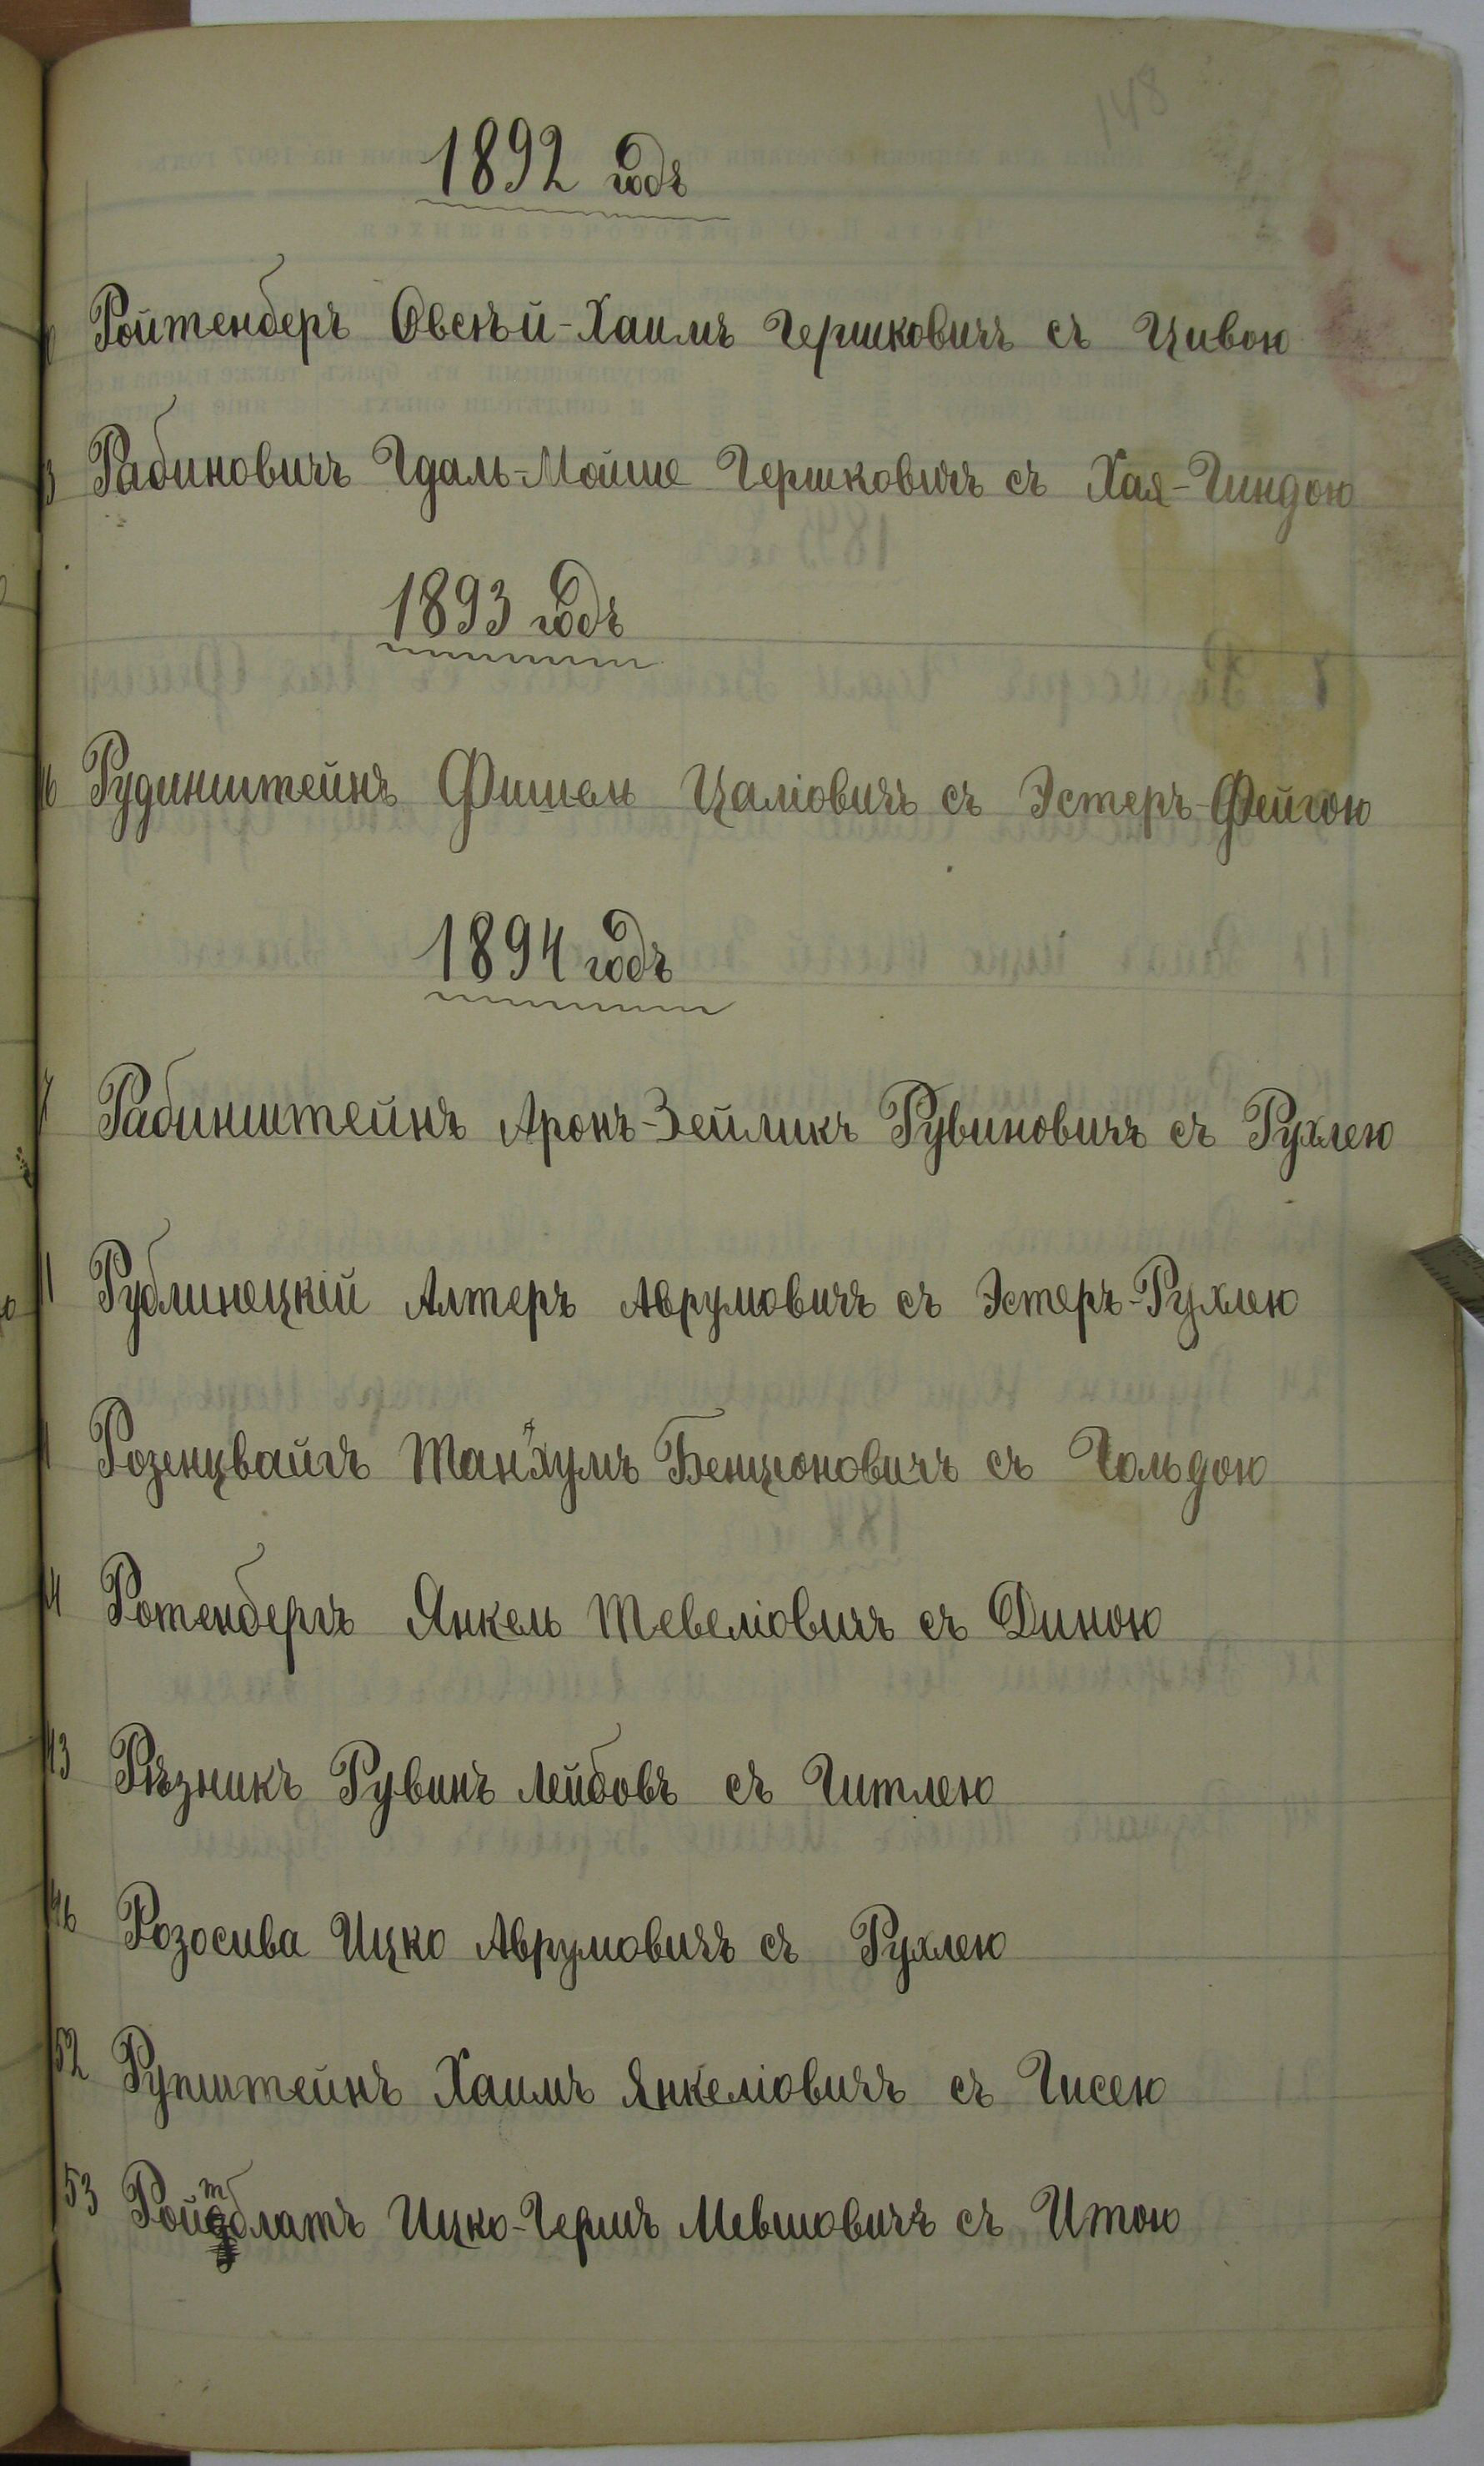 148
1892 годъ
Ройтенберъ Овсѣй-Хаимъ Гершковичъ съ Цивою
Рабиновичъ Гдаль-Мойше Гершковичъ съ Хая-Гиндою
1893 годъ
16 Рудинштейнъ Фишель Цаліовичъ съ Эстеръ-Фейгою
1894 годъ
7 Рабинштейнъ Аронъ-Зейликъ Рувиновичъ съ Рухлею
11 Рублинецкій Алтеръ Аврумовичъ съ Эстеръ-Рухлею
Розенцвайгъ Танхумъ Бенціоновичъ съ Гольдою
Ротенбергъ Янкель Тевеліовичъ съ Диною
43 Рѣзникъ Рувинъ Лейбовъ съ Гитлею
46 Розосива Ицко Аврумовичъ съ Рухлею
52 Рупштейнъ Хаимъ Янкеліовичъ съ Гисею
53 Ройтблатъ Ицко-Гершъ Мевшовичъ съ Итою